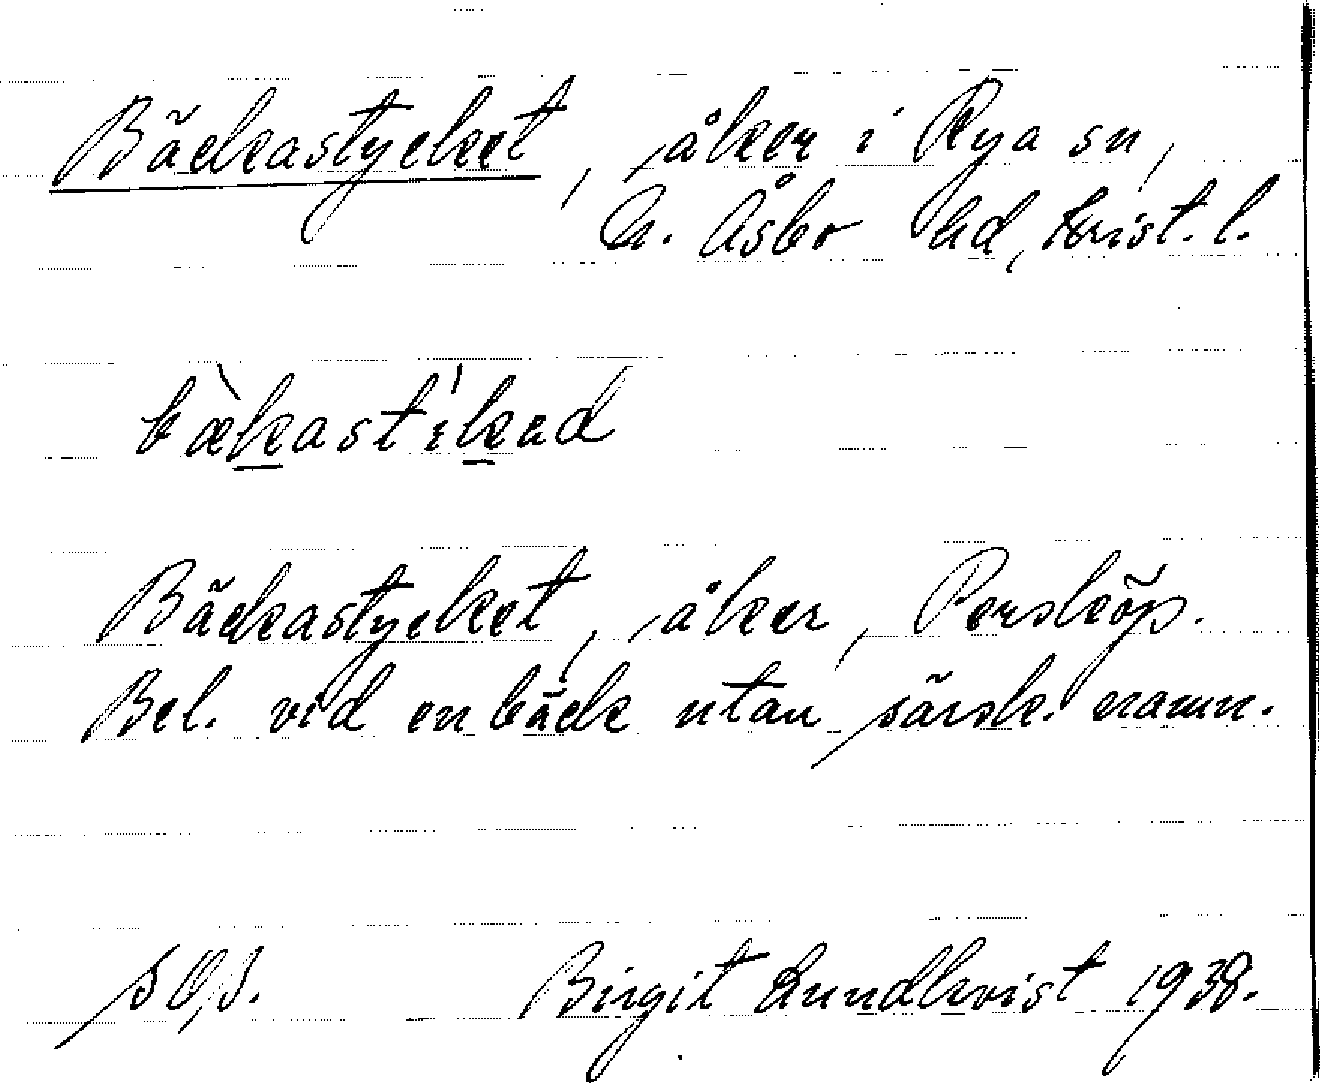 Bäckastycket, åker i Rya sn,
N. Åsbo hd, Krist. l.
bækastikad
Bäckastycket, åker, Persköp.
Bel. vid en bäck utan särsk. namn.
Birgit Lundkvist 1938.